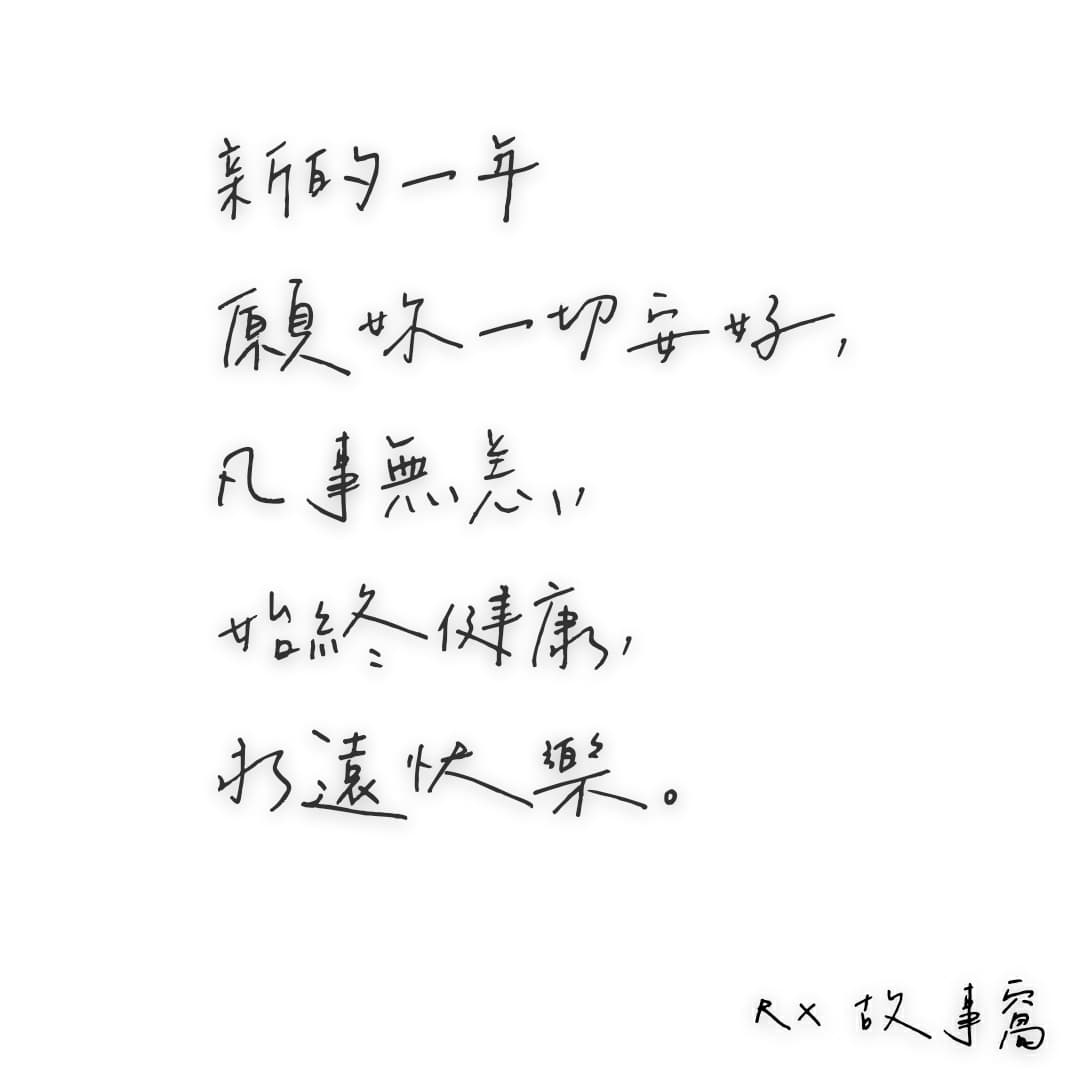 新的一年
願妳一切安好，
凡事無恙，
始終健康，
永遠快樂。
RX 故事窩